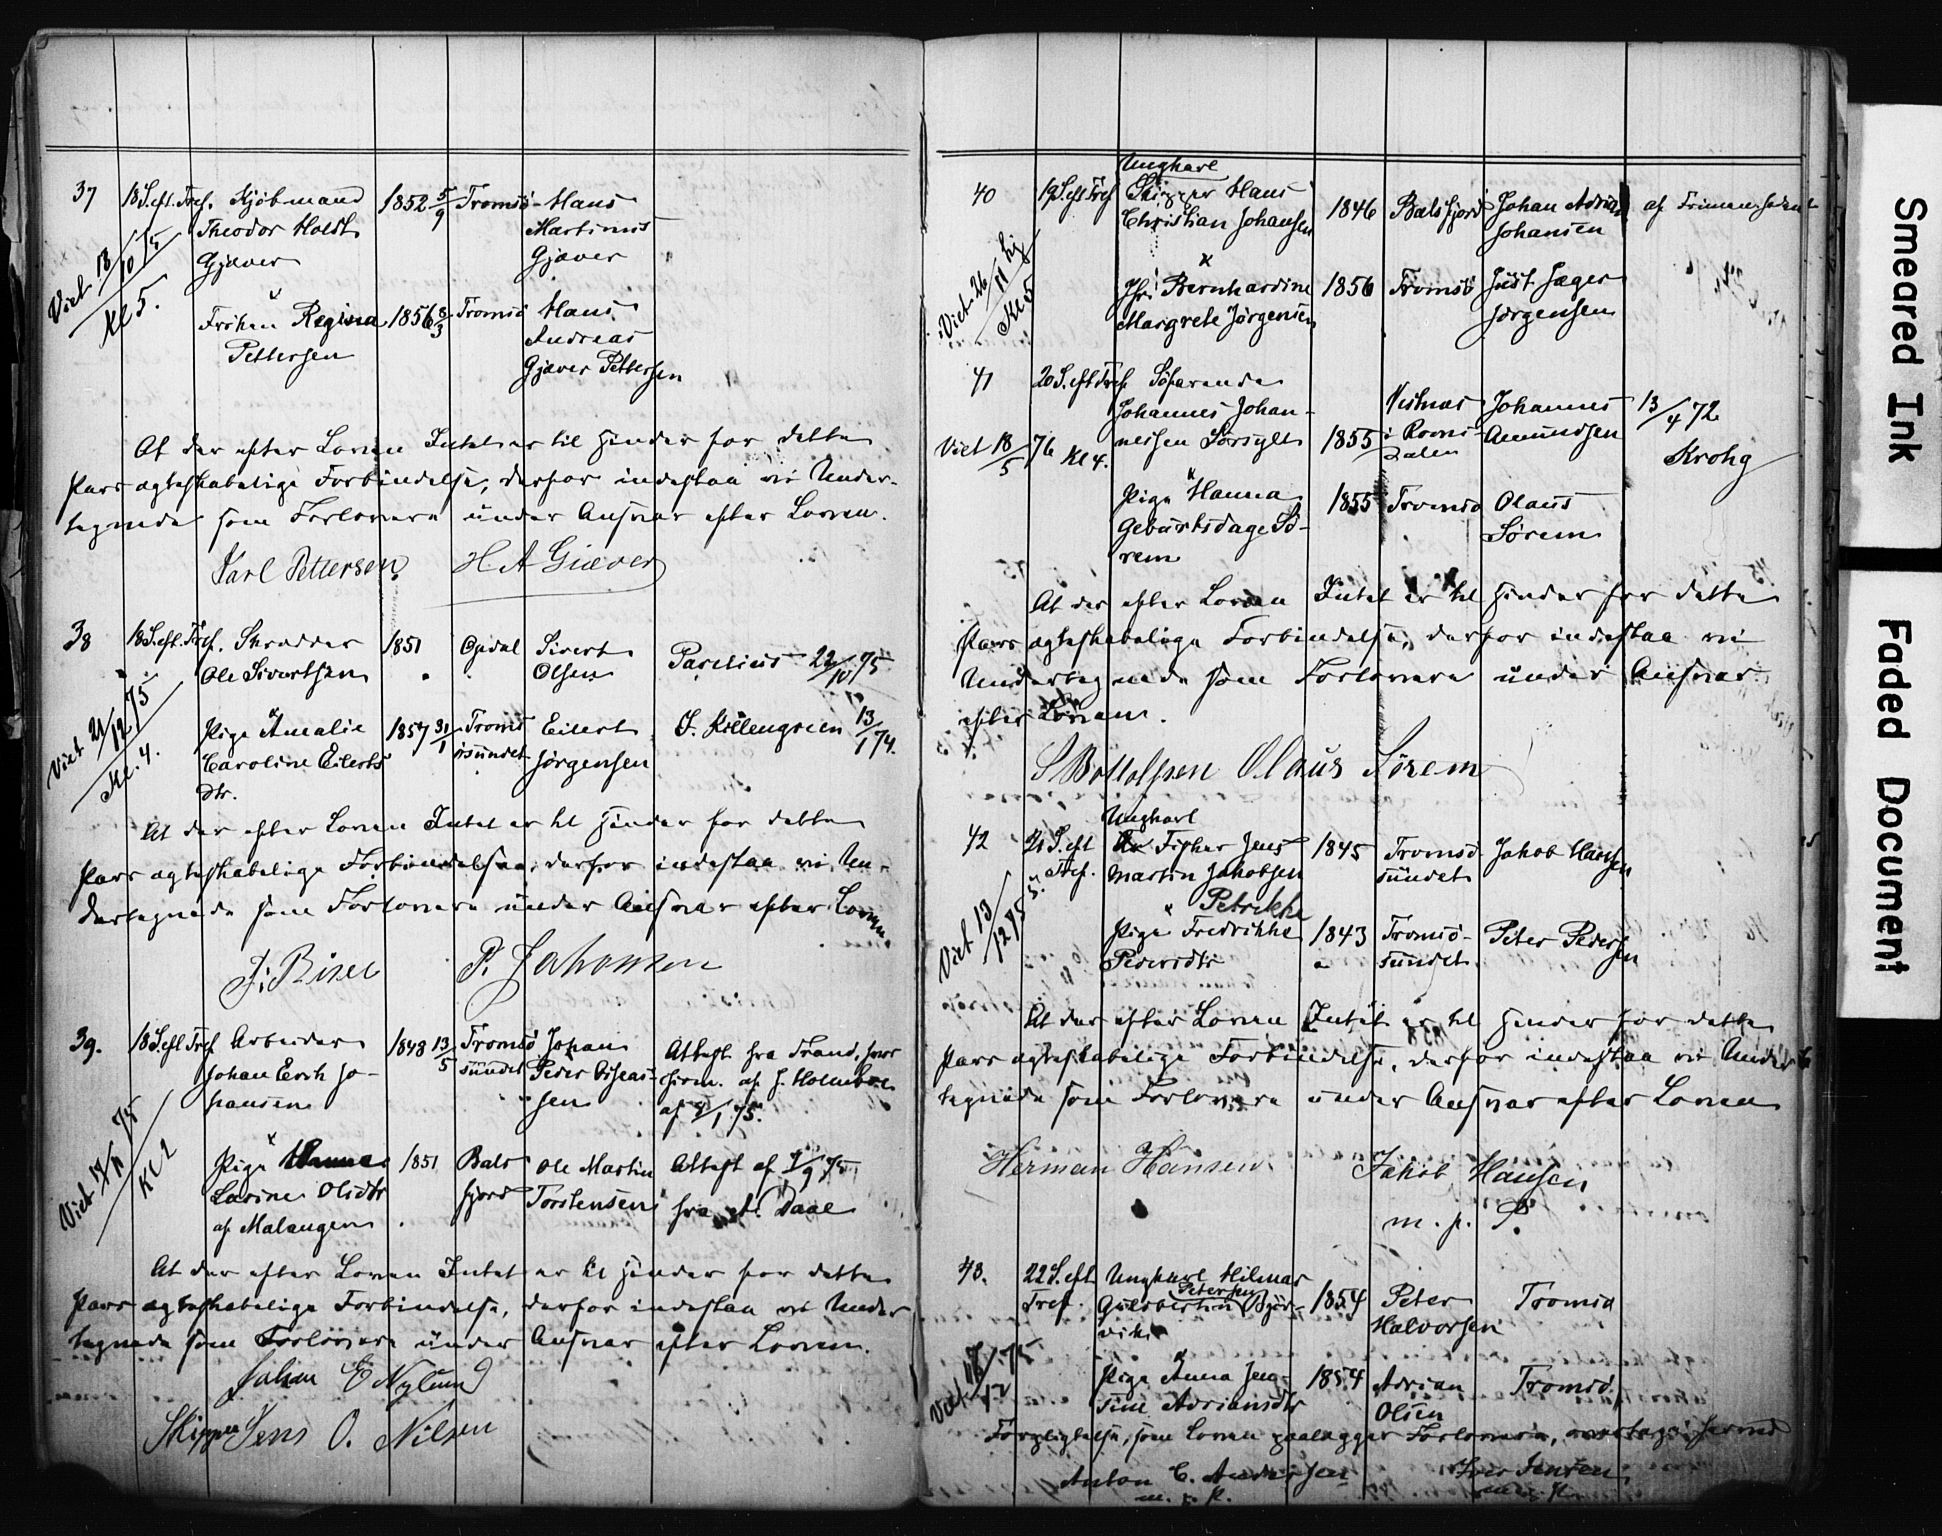 37
18 S. eft. Tref.
Kjöbmand
Theodor Holst
Gjæver
1852 5/9
Tromsö
Hans
Martinus
Gjæver
Viet 13/10 75
Kl 5.
Fröken Regina
Pettersen
1856 8/3
Tromsö
Hans
Andreas
Gjæver Pettersen
At der efter Loven Intet er til Hinder for dette
Pars ægteskabelige Forbindelse, derfor indestaa vi Under-
tegnede som Forlovere under Ansvar efter Loven.
Karl Pettersen. H A Giæver
38
18 S. eft. Tref.
Skrædder
Ole Sivertsen
1851
Opdal
Sivert
Olsen
Parelius 22/10 75
Viet 21/12 75
Kl. 4.
Pige Amalie
Caroline Eilerts
dtr.
1857 31/1
Troms
ösundet
Eilert
Jørgensen
J. Killengreen 13/1 74.
At der efter Loven Intet er til Hinder for dette
Pars ægteskabelige Forbindelse, derfor indestaa vi Un-
dertegnede som Forlovere under Ansvar efter Loven
P. Johansen
39.
18 S. eft Tref
Arbeider
Johan Erik Jo-
hansen
1848 13/5
Tromsö
sundet
Johan
Peder Esaias-
sen
Attest fra Trond. hvor
af J. Holmboe
af 8/1 75.
Viet 17/11 75
Kl 2
Pige Hanna
Larine Olsdtr
af Malangen
1851
Bals
fjord
Ole Martin
Torstensen
Attest af 7/9 75
fra A. Daae
At der efter Loven Intet er til Hinder for dette
Pars ægteskabelige Forbindelse, derfor indestaa vi Under
tegnede som Forlovere under Ansvar efter Loven.
Johan E Nylund
Skipper Jens O. Nilsen
40
19 S. eft Tref
Ungkarl
Skipper Hans
Christian Johansen
1846
Balsfjord
Johan Adrian
Johansen
Viet 26/11
Kl 5
Bernhardine
Margrete Jörgensen
1856
Tromsö
Just Jæger
Jörgensen
41
20 S. eft Tref
Söfarende
Johannes Johan-
nessen Sörsylt
1855
Vestnæs
i Roms-
dalen
Johannes
Amundsen
13/4 72
Krohg
Viet 18/5 76 Kl 4.
Pige Hanna
Geburtsdage Sö-
rem
1855
Tromsö
Olaus
Sörem
At der efter Loven Intet er til Hinder for dette
Pars ægteskabelige Forbindelse, derfor indestaa vi
Undertegnede som Forlovere under Ansvar
efter Loven.
S Bottolfsen Olaus Sörem
42
21 S. eft
Tref.
Ungkarl
Fisker Jens
Martin Jakobsen
1845
Tromsö
sundet
Jakob Hansen
Viet 13/12 75
Petrikke
Pige Fredrikke
Pedersdtr
1843
Tromsö-
sundet
Peter Pedersen
At der efter Loven Intet er til Hinder for dette
Pars ægteskabelige Forbindelse, derfor indestaa vi Under
tegnede som Forlovere under Ansvar efter Loven
Herman Hansen Jakob Hansen
m. p. P.
43.
22 S. eft
Tref.
Ungkarl Hilmar
Petersen
Gulbertin Björ-
vik
1854
Peter
Halvorsen
Tromsö
Viet 17/12 75
Pige Anna Jen-
sine Adriansdtr
1854
Adrian
Olsen
Tromsö
Forpligtelse, som Loven paalægger Forlovere, overtages herved
Anton C. Andersen
m. p. P.
Iver Jensen
m. p. P.
Smeared Ink
Faded Document